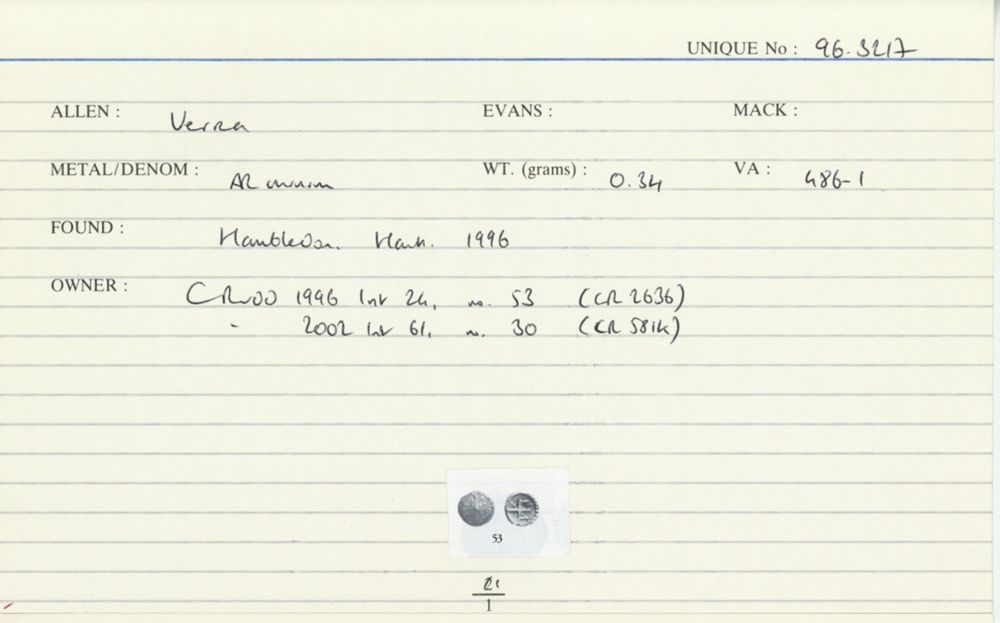 UNIQUE No : 96.3217
ALLEN : Verica EVANS : MACK :
METAL/DENOM : AR minim WT. (grams) : 0.34 VA : 486-1
FOUND : Hambledon. Hants. 1996
OWNER : 1996 List 24, no. 53 (CR 2636)
" 2002 List 61, no. 30 (CR 581k)
53
1